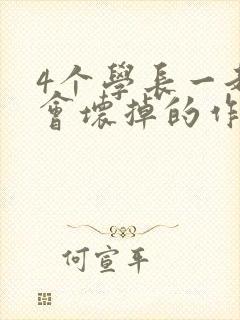 4个學長一起
會壞掉的作
何宣平